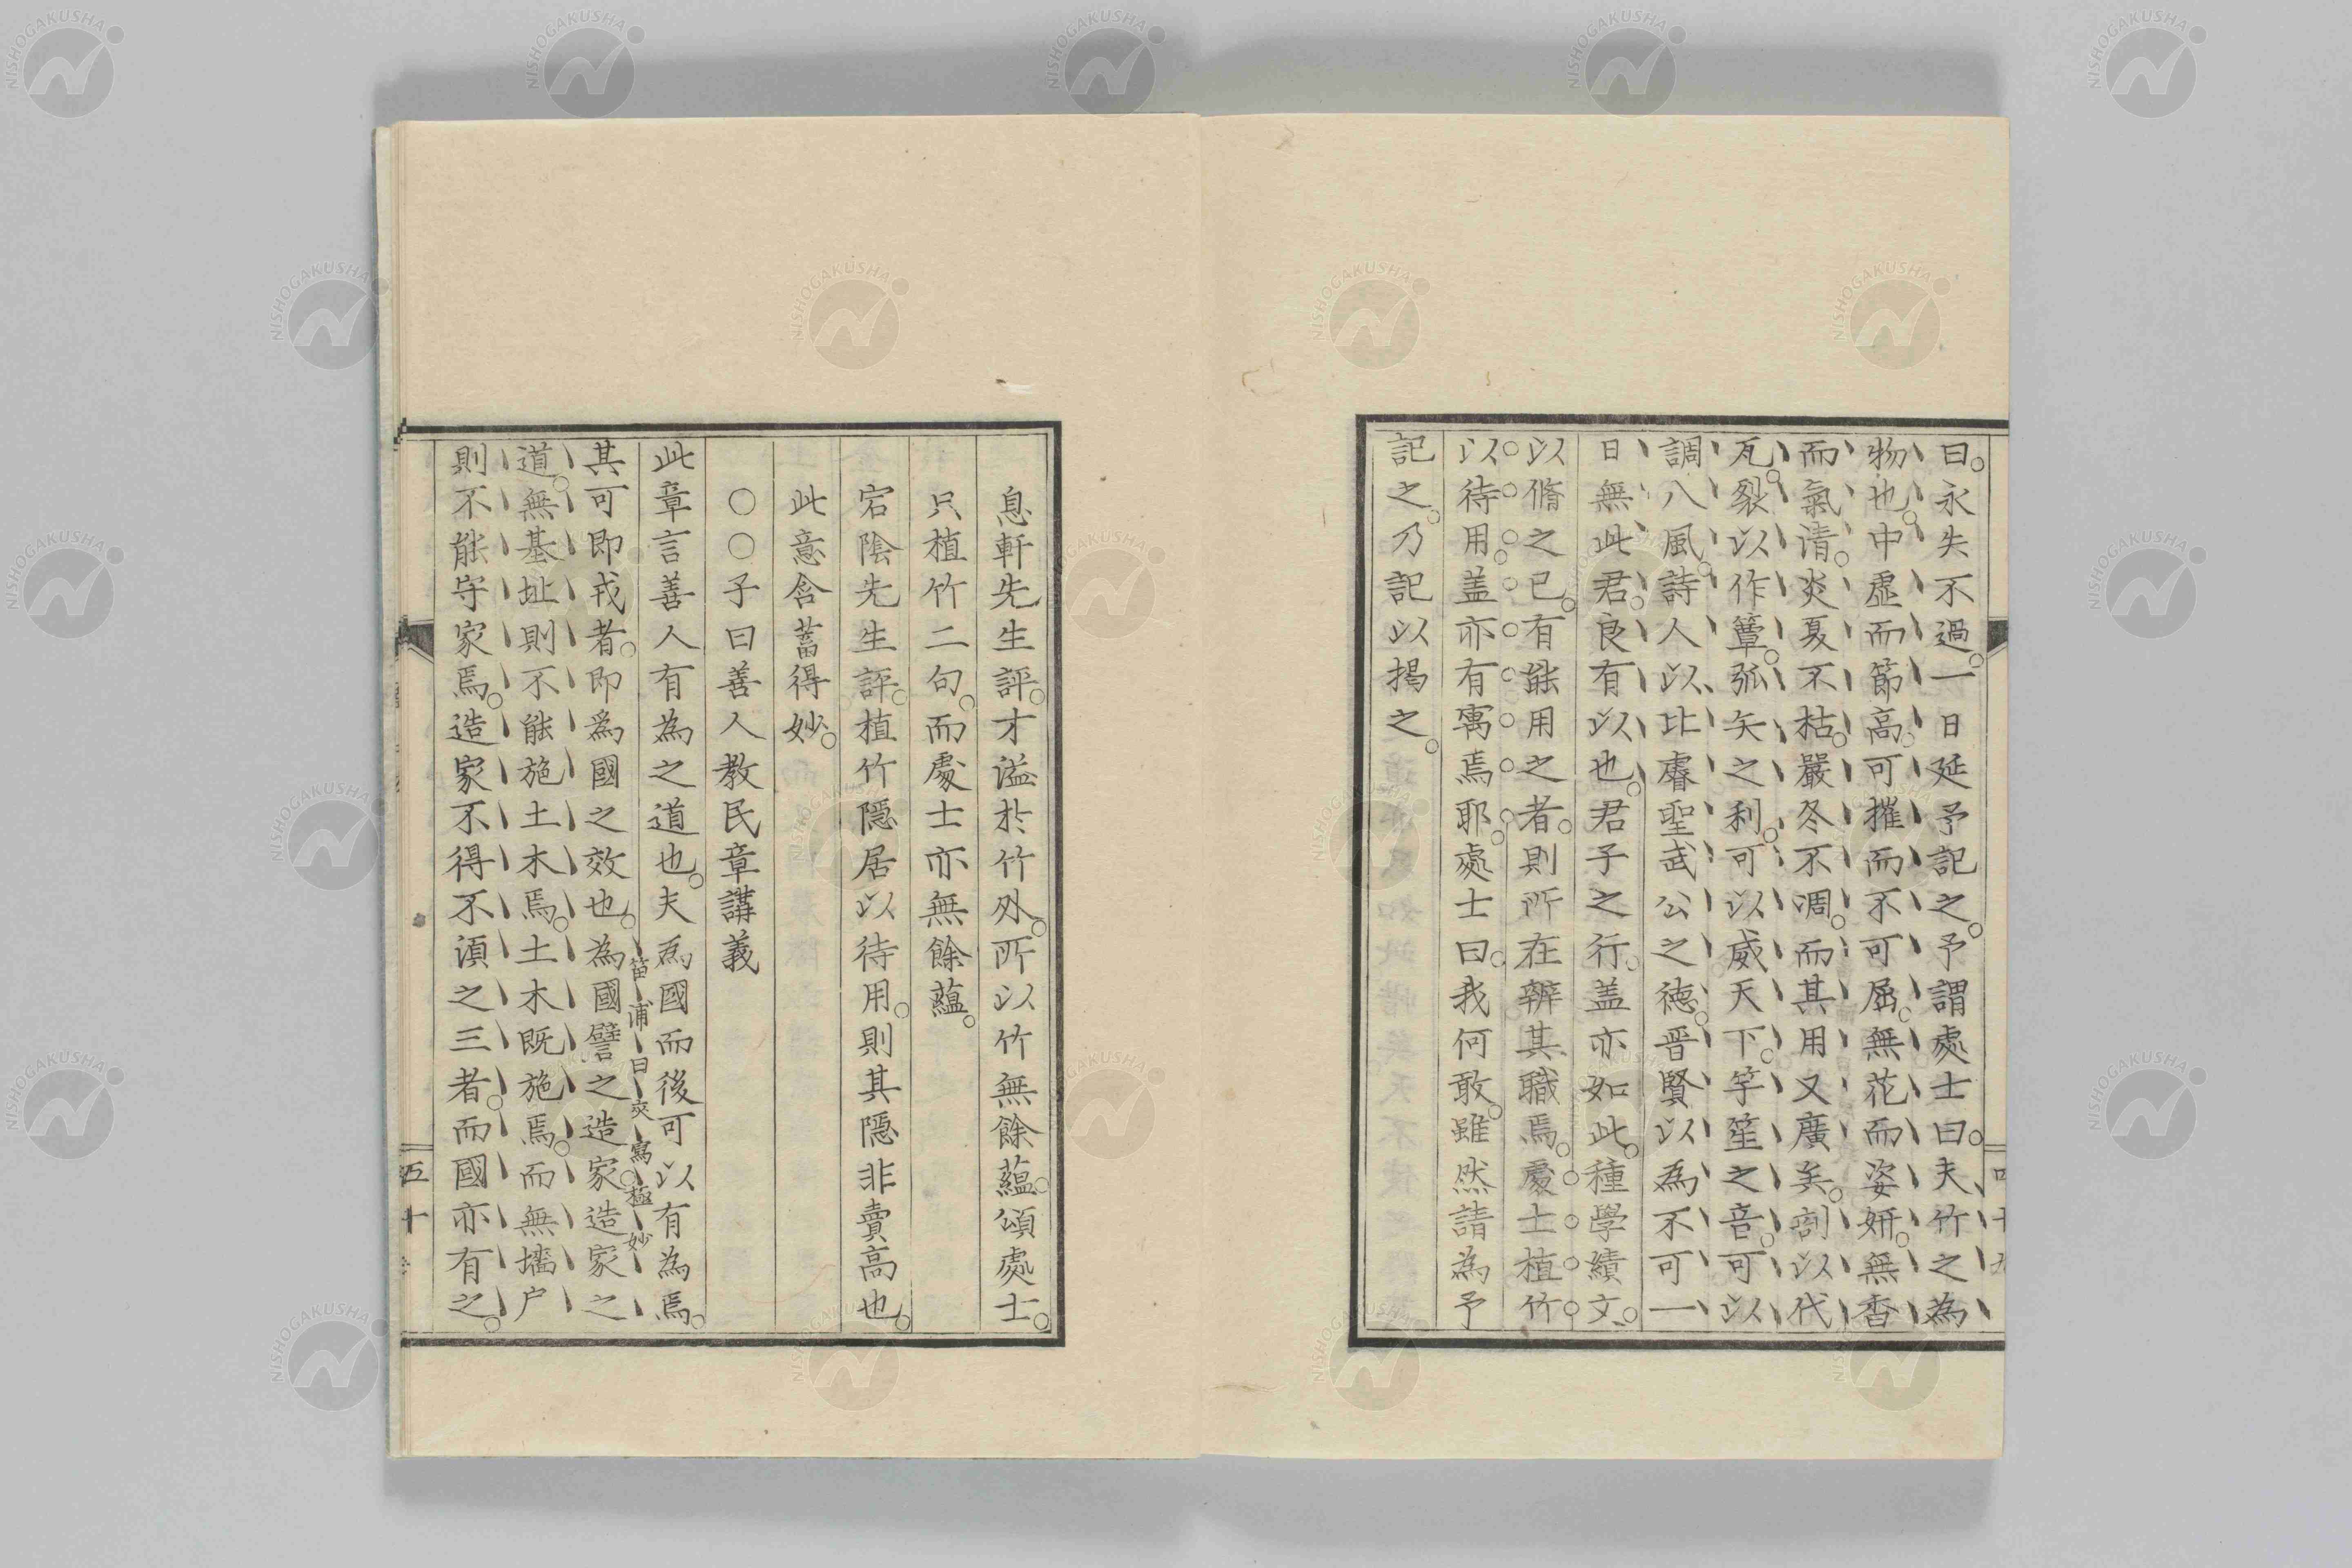 曰。永失不過。一日延予記之。予謂處士曰。夫竹之為
物也。中虛而節高。可摧而不可屈。無花而姿妍。無香
而氣清。炎夏不枯。嚴冬不凋。而其用又廣矣。割以代
瓦。裂以作簟。弧矢之利。可以威天下。竽笙之音。可以
調八風。詩人以比睿聖武公之徳。晋賢以為不可一
日無此君。良有以也。君子之行。盖亦如此。種學績文。
以脩之已。有能用之者。則所在辦其職焉。處士植竹
以待用。盖亦有寓焉耶。處士曰。我何敢。雖然請為予
記之。乃記以揭之。
息軒先生評。才溢於竹外。所以竹無餘蘊。頌處士。
只植竹二句。而處士亦無餘蘊。
宕陰先生評。植竹隱居以待用。則其隱非賣高也。
此意含蓄得妙。
○○子曰善人教民章講義
此章言善人有為之道也。夫為國而後可以有為焉。
其可即戎者。即爲國之效也。為國譬之造家。造家之
笛浦曰夾寫極妙
道。無基址則不能施土木焉。土木既施焉。而無墻户
則不能守家焉。造家不得不湏之三者。而國亦有之。
五十
NISHOGAKUSHA